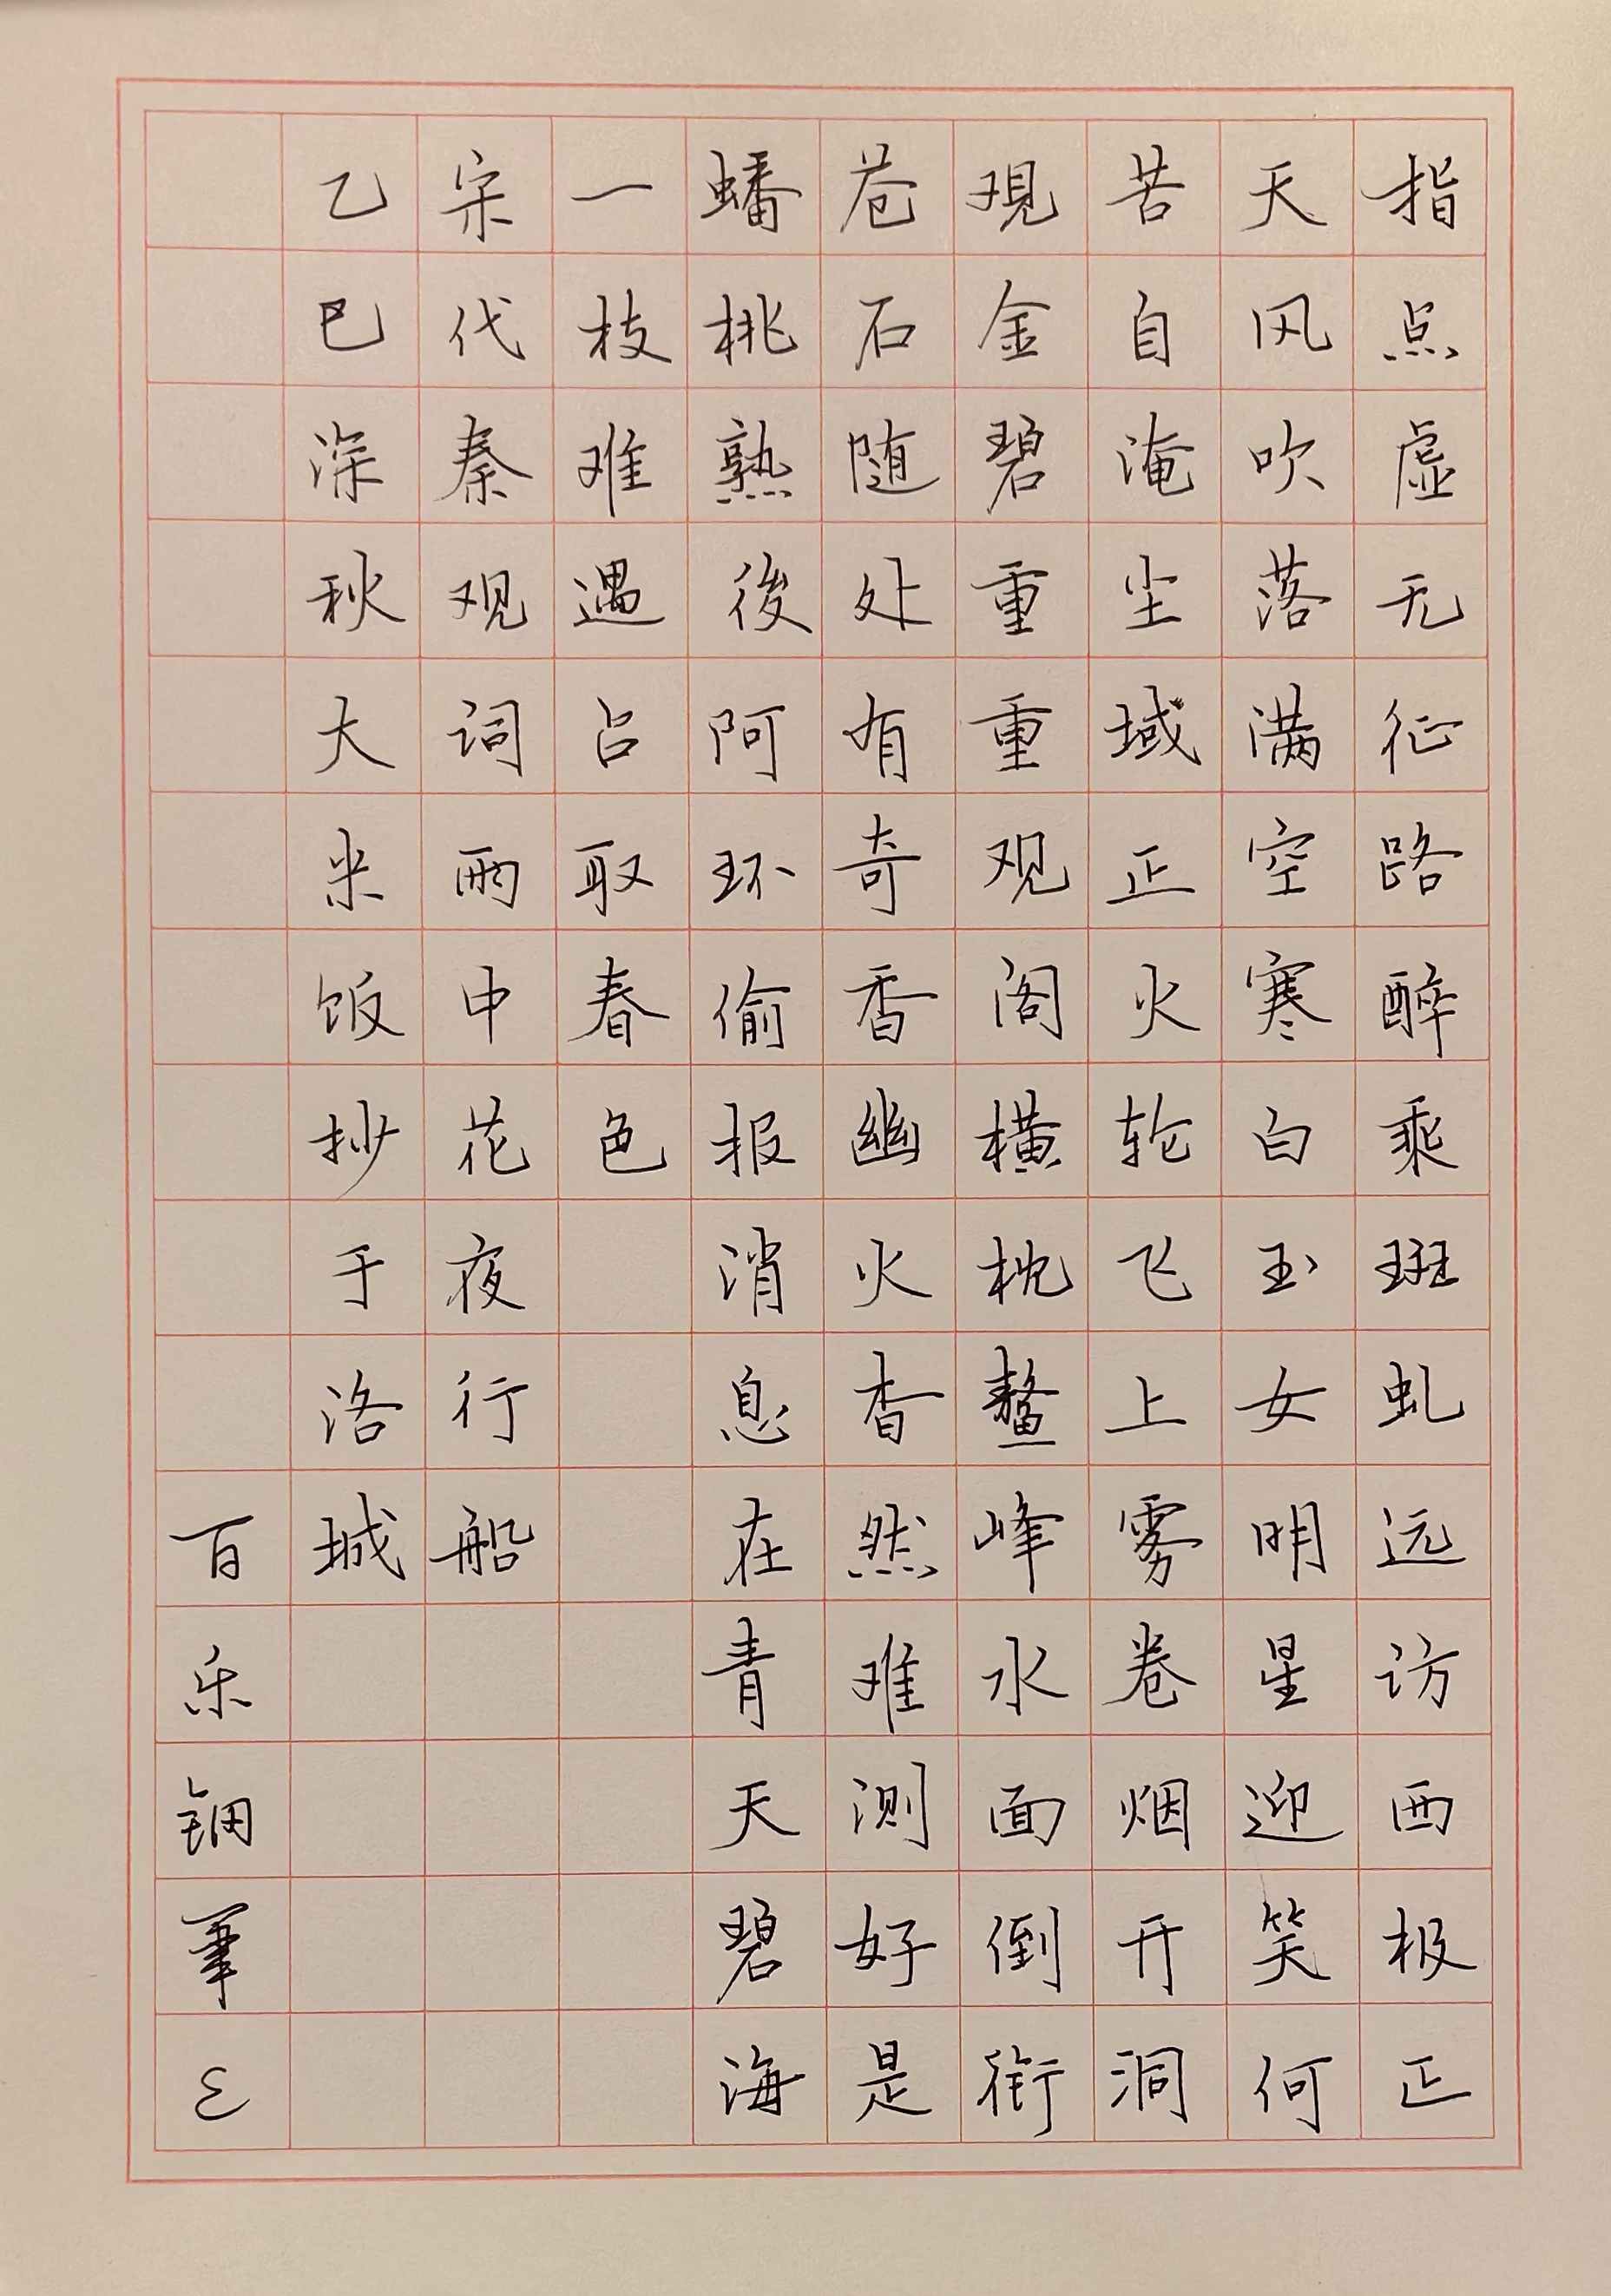 指点虚无征路醉乘斑虬远访西极正
天风吹落满空寒白玉女明星迎笑何
苦自淹尘域正火轮飞上雾卷烟开洞
覌金碧重重观阁横枕鳌峰水面倒衔
苍石随处有奇香幽火杳然难测好是
蟠桃熟後阿环偷报消息在青天碧海
一枝难遇占取春色
宋代秦观词雨中花夜行船
乙巳深秋大米饭抄于洛城
百乐钢筆